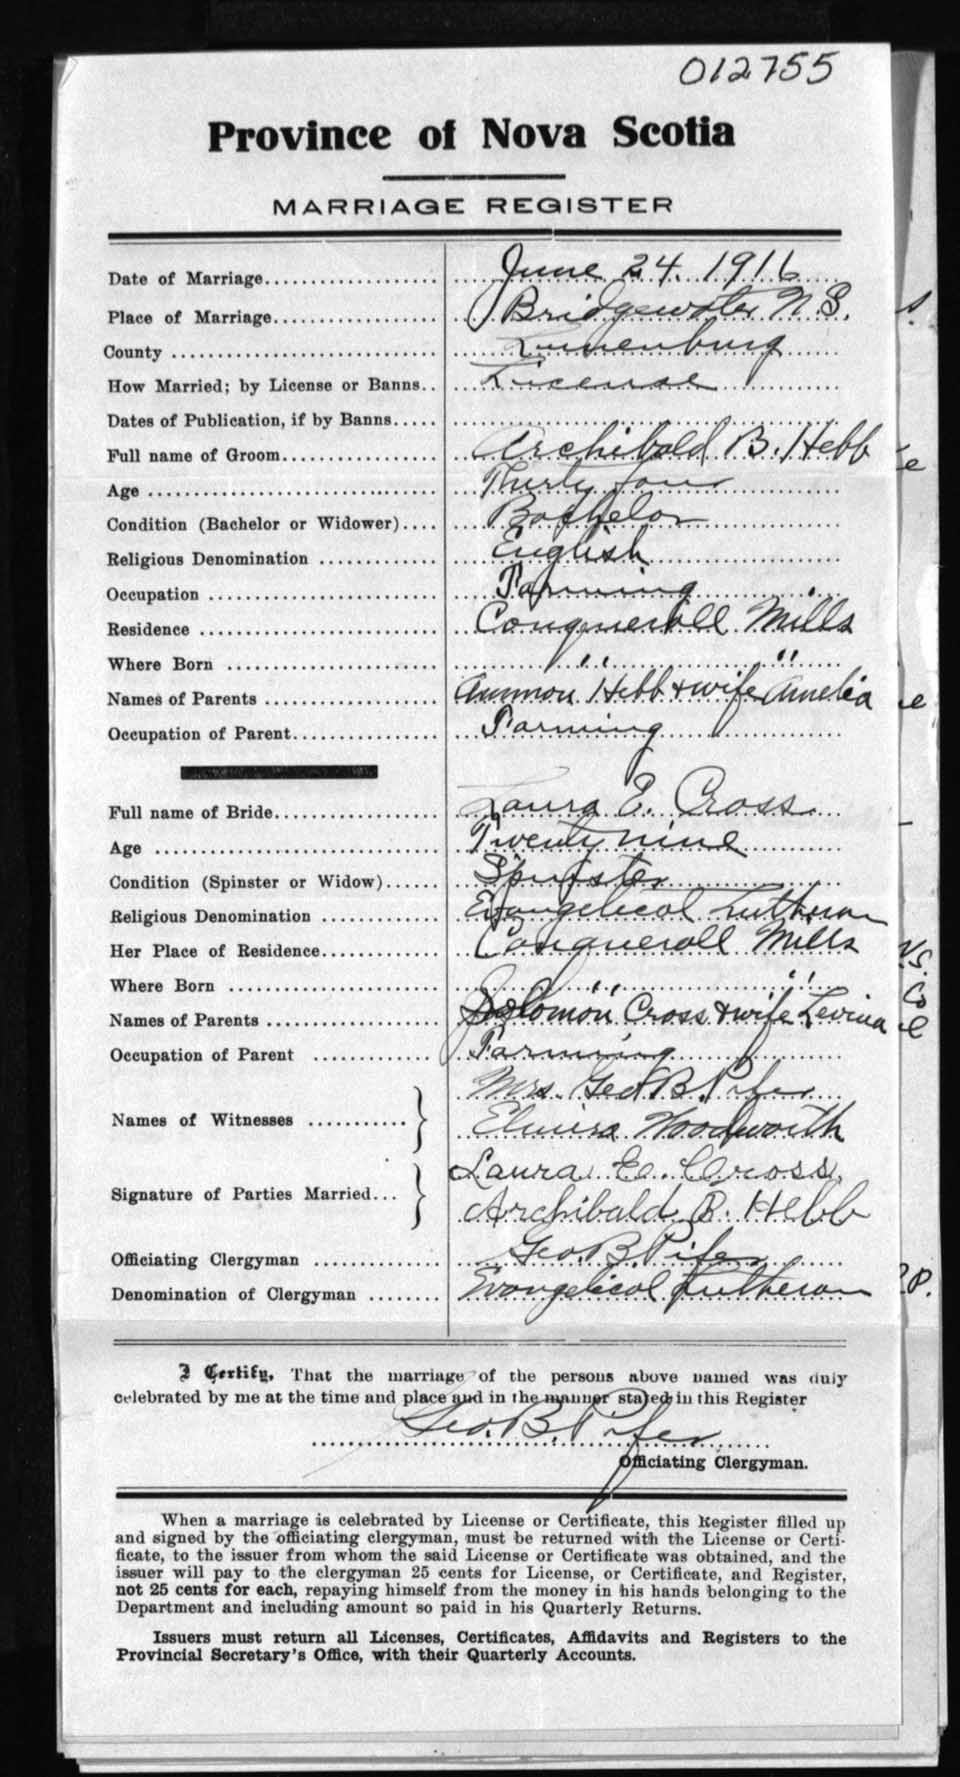 012755
Province of Nova Scotia
MARRIAGE REGISTER
Date of Marriage.................... June 24. 1916
Place of Marriage................... Bridgewater N.S.
County .............................. Lunenburg
How Married; by License or Banns.. License
Dates of Publication, if by Banns.....
Full name of Groom.................. Archibald B. Hebb
Age .................................. Thirty four
Condition (Bachelor or Widower).... Bachelor
Religious Denomination ............. English
Occupation .......................... Farming
Residence ........................... Conquerall Mills
Where Born ........................ " "
Names of Parents ................... Ammon Hebb & wife Amelia
Occupation of Parent................ Farming
Full name of Bride................... Laura E. Cross
Age .................................. Twenty nine
Condition (Spinster or Widow)...... Spinster
Religious Denomination ............. Evangelical Lutheran
Her Place of Residence.............. Conquerall Mills
Where Born ........................ " "
Names of Parents ................... Solomon Cross & wife Levina
Occupation of Parent ............. Farming
Names of Witnesses ........... } Mrs. Geo B. Pifer
Elmira Woodworth
Signature of Parties Married... } Laura E. Cross
Archibald B. Hebb
Officiating Clergyman .............. Geo. B. Pifer
Denomination of Clergyman ........ Evangelical Lutheran
I Certify, That the marriage of the persons above named was duly
celebrated by me at the time and place and in the manner stated in this Register
Geo. B. Pifer
Officiating Clergyman.
When a marriage is celebrated by License or Certificate, this Register filled up
and signed by the officiating clergyman, must be returned with the License or Certi-
ficate, to the issuer from whom the said License or Certificate was obtained, and the
issuer will pay to the clergyman 25 cents for License, or Certificate, and Register,
not 25 cents for each, repaying himself from the money in his hands belonging to the
Department and including amount so paid in his Quarterly Returns.
Issuers must return all Licenses, Certificates, Affidavits and Registers to the
Provincial Secretary's Office, with their Quarterly Accounts.